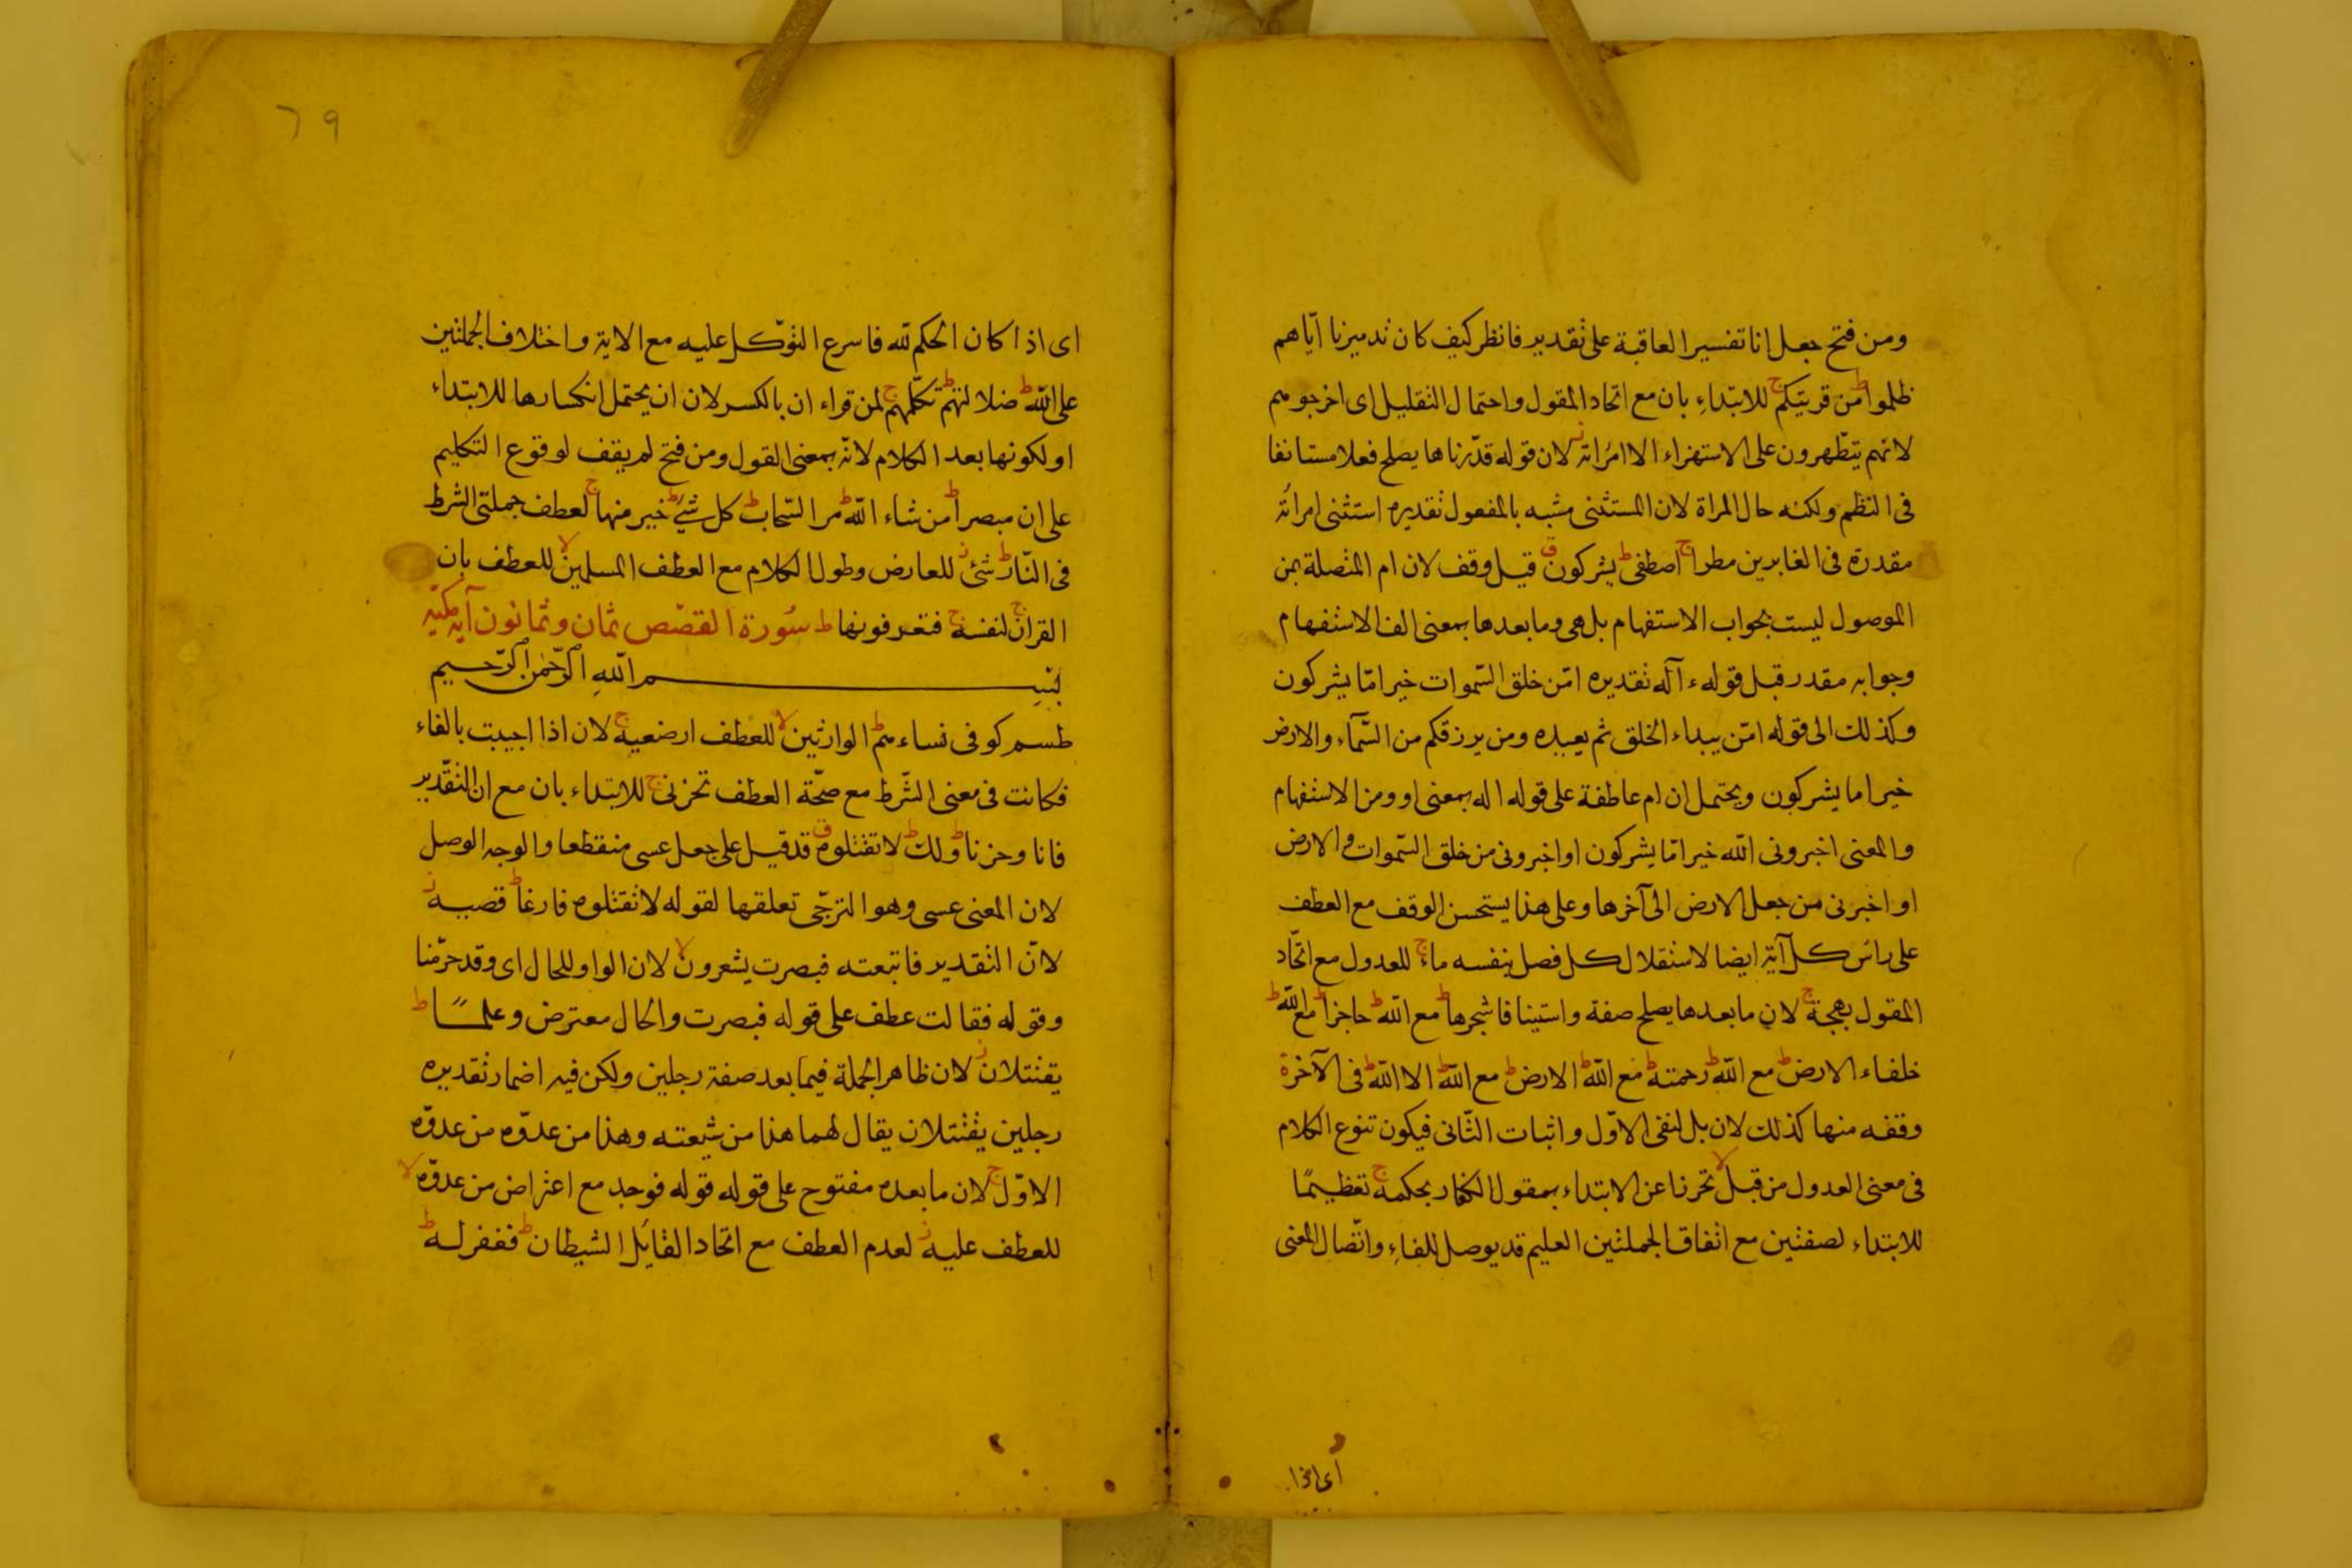 ومن فتح جعل انا تفسير العاقبة على تقدير فانظر كيف كان تدميرنا ايّاهم
ظلموا ط من قريتكم ج للابتداءِ بان مع اتحاد المقول واحتمال التقليل اى اخرجوهم
لانهم يتطّهرون على الاستهزاء الا امراته ز لان قوله قدّرناها يصلح فعلا مستانفا
فى النظم ولكنه حال المراة لان المستثنى مشبه بالمفعول تقديره استثنى امرأته
مقدرة فى الغابرين مطرا ج اصطفى ط يشركون ق قيل وقف لان ام المتصلة بمن
الموصول ليست بجواب الاستفهام بل هى وما بعدها بمعنى الف الاستفهام
وجوابه مقدر قبل قوله ءآله تقديره امّن خلق السّموات خير امّا يشركون
وكذلك الى قوله امّن يبداء الخلق ثم يعيده ومن يرزقكم من السّمآء والارض
خير اما يشركون ويحتمل ان ام عاطفة على قوله اله بمعنى او ومن الاستفهام
والمعنى اخبرونى الله خير امّا يشركون او اخبرونى من خلق السّموات والارض
او اخبرنى من جعل الارض الى آخرها وعلى هذا يستحسن الوقف مع العطف
على راس كل آية ايضا لاستقلال كل فصل بنفسه ماء ج للعدول مع اتّحاد
المقول بهجة ج لان ما بعدها يصلح صفة واستينافا شجرها ط مع الله ط حاجزا ط مع الله ط
خلفاء الارض ط مع الله ط رحمته ط مع الله ط الارض ط مع الله ط الا الله ط فى الآخرة
وقفه منها كذلك لان بل لنفى الاوّل واثبات الثّانى فيكون تنوع الكلام
فى معنى العدول من قبل لا تحرزا عن الابتداء بمقول الكفار بحكمه ج تعظيمًا
للابتداء لصفتين مع اتفاق الجملتين العليم قد يوصل للفاءِ واتّصال المعنى
اى اذا
٦٩
اى اذا كان الحكم لله فاسرع التوّكل عليه مع الاية واختلاف الجملتين
على الله ط ضلالتهم ط تكلّمهم ج لمن قراء ان بالكسر لان ان يحتمل انكسارها للابتداء
او لكونها بعد الكلام لانّه بمعنى القول ومن فتح لم يقف لوقوع التكليم
على ان مبصرا ط من شاء الله ط مر السّحاب ط كل شئ ط خير منها ج لعطف جملتى الشرط
فى النّار ط شئ ز للعارض وطول الكلام مع العطف المسلمين لا للعطف بان
القران ج لنفسه ج فتعرفونها ط سُورة القصص ثمان وثمانون آية مكيّه
بِسْمِ اللّهِ الرّحْمٰن الرّحيم
طسم كوفى نساءهم ط الوارثين لا للعطف ارضعيه ج لان اذا اجيبت بالفاء
فكانت فى معنى الشّرط مع صحّة العطف تحزنى ج للابتداء بان مع ان التقّدير
فانا وحزنا ط ولك ط لا تقتلوه ق قد قيل على جعل عسى منقطعا والوجه الوصل
لان المعنى عسى وهو الترجّى تعلقها لقوله لا تقتلوه فارغا ط قصيه ز
لانّ التقدير فاتبعته فبصرت يشعرون لا لان الواو للحال اى وقد حرّمنا
وقوله فقالت عطف على قوله فبصرت والحال معترض وعلمًا ط
يقتتلان ز لان ظاهر الجملة فيما بعد صفة رجلين ولكن فيه اضمار تقديره
رجلين يقتتلان يقال لهما هذا من شيعته وهذا من عدوّه من عدوّه
الاوّل ج لان ما بعده مفتوح على قوله قوله فوجد مع اعتراض من عدوّه لا
للعطف عليه ز لعدم العطف مع اتحاد القايل الشيطان ط فغفر له ط